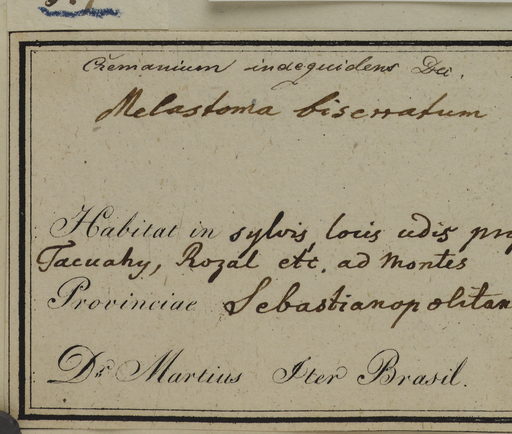 Cremanium inaequidens Dec.
Melastoma biserratum
Habitat in sylvis, locis udis prop
Tacuahy, Rozal etc. ad montes
Provinciae Sebastianopolitan
Dr. Martius Iter Brasil.